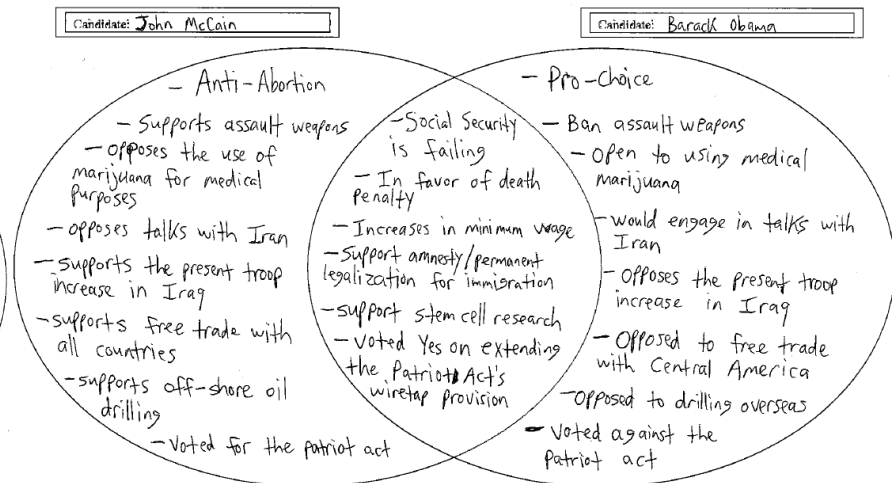 Candidate: John McCain
Candidate: Barack Obama
- Anti-Abortion
- Supports assault weapons
- opposes the use of
marijuana for medical
purposes
- opposes talks with Iran
- supports the present troop
increase in Iraq
- supports free trade with
all countries
- supports off-shore oil
drilling
- Voted for the patriot act
- Social Security
is failing
- In favor of death
Penalty
- Increases in minimum wage
- Support amnesty/permanent
legalization for immigration
- support stem cell research
- Voted Yes on extending
the Patriot Act's
wiretap provision
- Pro-Choice
- Ban assault weapons
- Open to using medical
marijuana
- would engage in talks with
Iran
- opposes the present troop
increase in Iraq
- Opposed to free trade
with Central America
- opposed to drilling overseas
- Voted against the
Patriot act